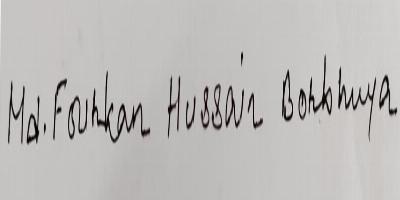 Md. Fourkan Hussain Borbhuya